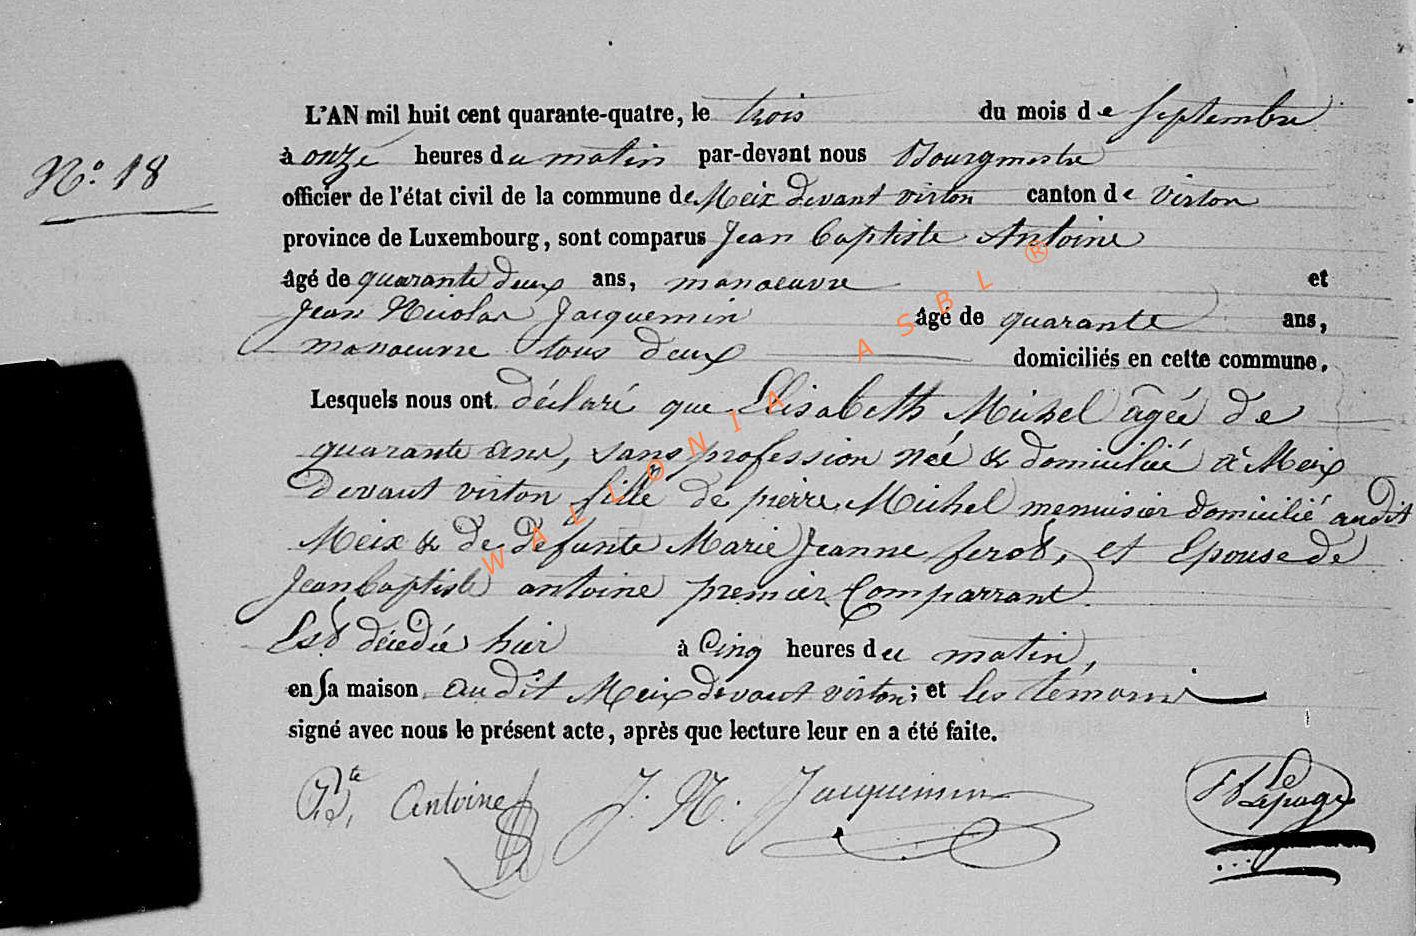 L'AN mil huit cent quarante-quatre, le trois du mois de Septembre
à onze heures du matin par-devant nous Bourgmestre
N.º 18
officier de l'état civil de la commune de Meix devant virton canton de Virton
province de Luxembourg, sont comparus Jean Baptiste Antoine
âgé de quarante deux ans, manoeuvre et
Jean Nicolas Jacquemin âgé de quarante ans,
manoeuvre tous deux domiciliés en cette commune.
Lesquels nous ont déclaré que Elisabeth Michel âgée de
quarante ans, sans profession née & domicilié à Meix
Devant virton fille de pierre Michel menuisier domicilié audit
Meix & de défunte Marie Jeanne ferot, et Epouse de
Jean baptiste antoine premier Comparrant
Est décedée hier à Cinq heures du matin,
en sa maison audit Meix devant virton; et les témoins
signé avec nous le présent acte, après que lecture leur en a été faite.
J. Bte. Antoine J. N. Jacquemin Lepage
WALLONIA ASBL ®